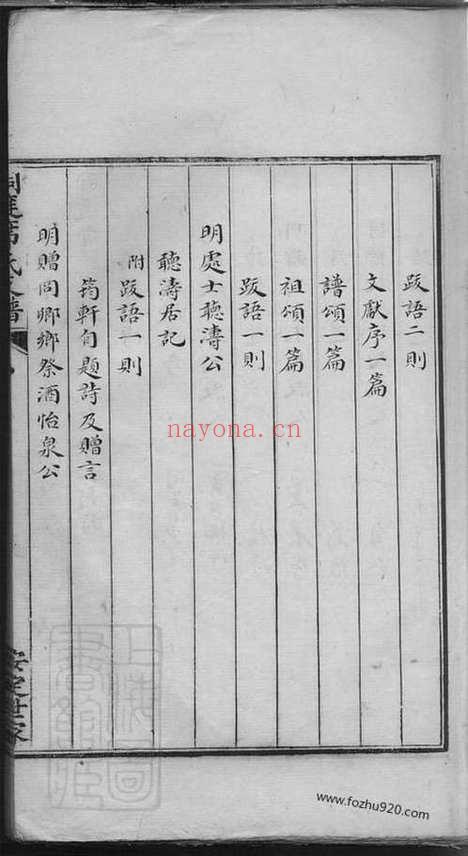 跋語二則
文獻序一篇
譜頌一篇
祖頌一篇
跋語一則
明處士聽濤公
聽濤居記
附跋語一則
筠軒旬題詩及贈言
明贈同卿鄉祭酒怡泉公
席氏譜
安定世家
nayona.cn
www.fozhu920.com